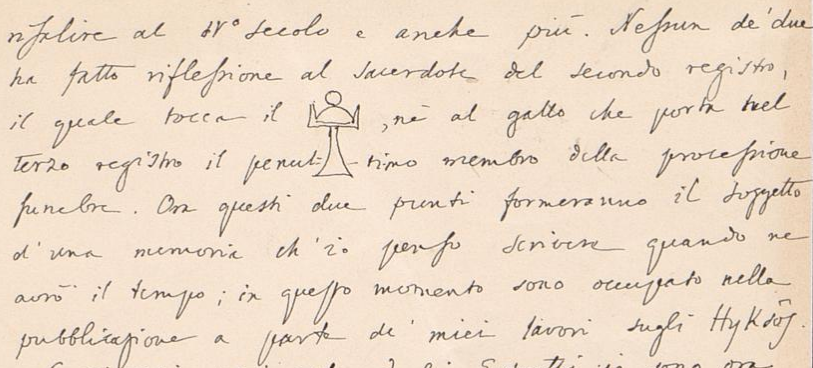 risalire al IV° secolo e anche più. Nessun de' due
ha fatto riflessione al sacerdote del secondo registro,
il quale tocca il , nè al gatto che porta nel
terzo registro il penul- timo membro della processione
funebre. Ora questi due punti formeranno il soggetto
d'una memoria ch'io penso scrivere quando ne
avrò il tempo; in questo momento sono occupato nella
pubblicazione a parte de' miei lavori sugli Hyksôs.